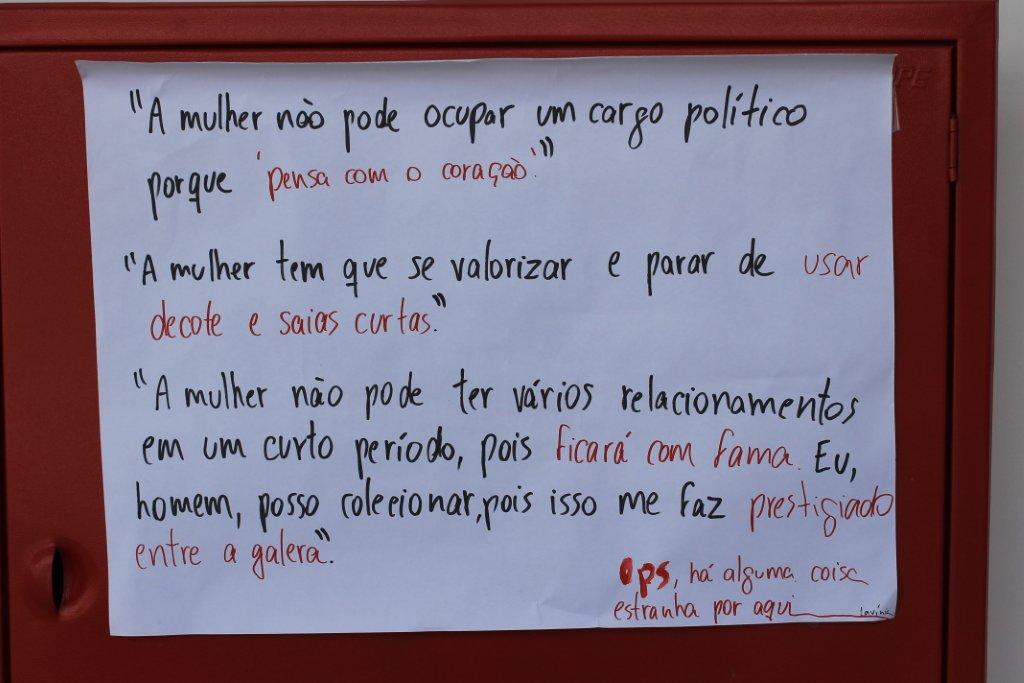 "A mulher não pode ocupar um cargo político
porque 'pensa com o coração'."
"A mulher tem que se valorizar e parar de usar
decote e saias curtas."
"A mulher não pode ter vários relacionamentos
em um curto período, pois ficará com fama. Eu,
homem, posso colecionar, pois isso me faz prestigiado
entre a galera".
Ops, há alguma coisa
estranha por aqui